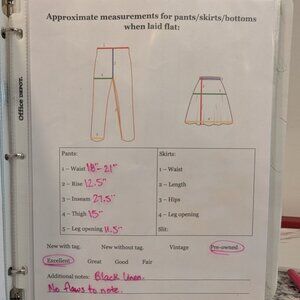 Approximate measurements for pants/skirts/bottoms
when laid flat:
Office DEPOT.
Pants:
Skirts:
1 – Waist 18"-21"
1 – Waist
2 – Rise 12.5"
2 – Length
3 – Inseam 27.5"
3 – Hips
4 – Thigh 15"
4 – Leg opening
5 – Leg opening 11.5"
Slit:
New with tag. New without tag. Vintage Pre-owned
Excellent Great Good Fair
Additional notes: Black Linen.
No flaws to note.